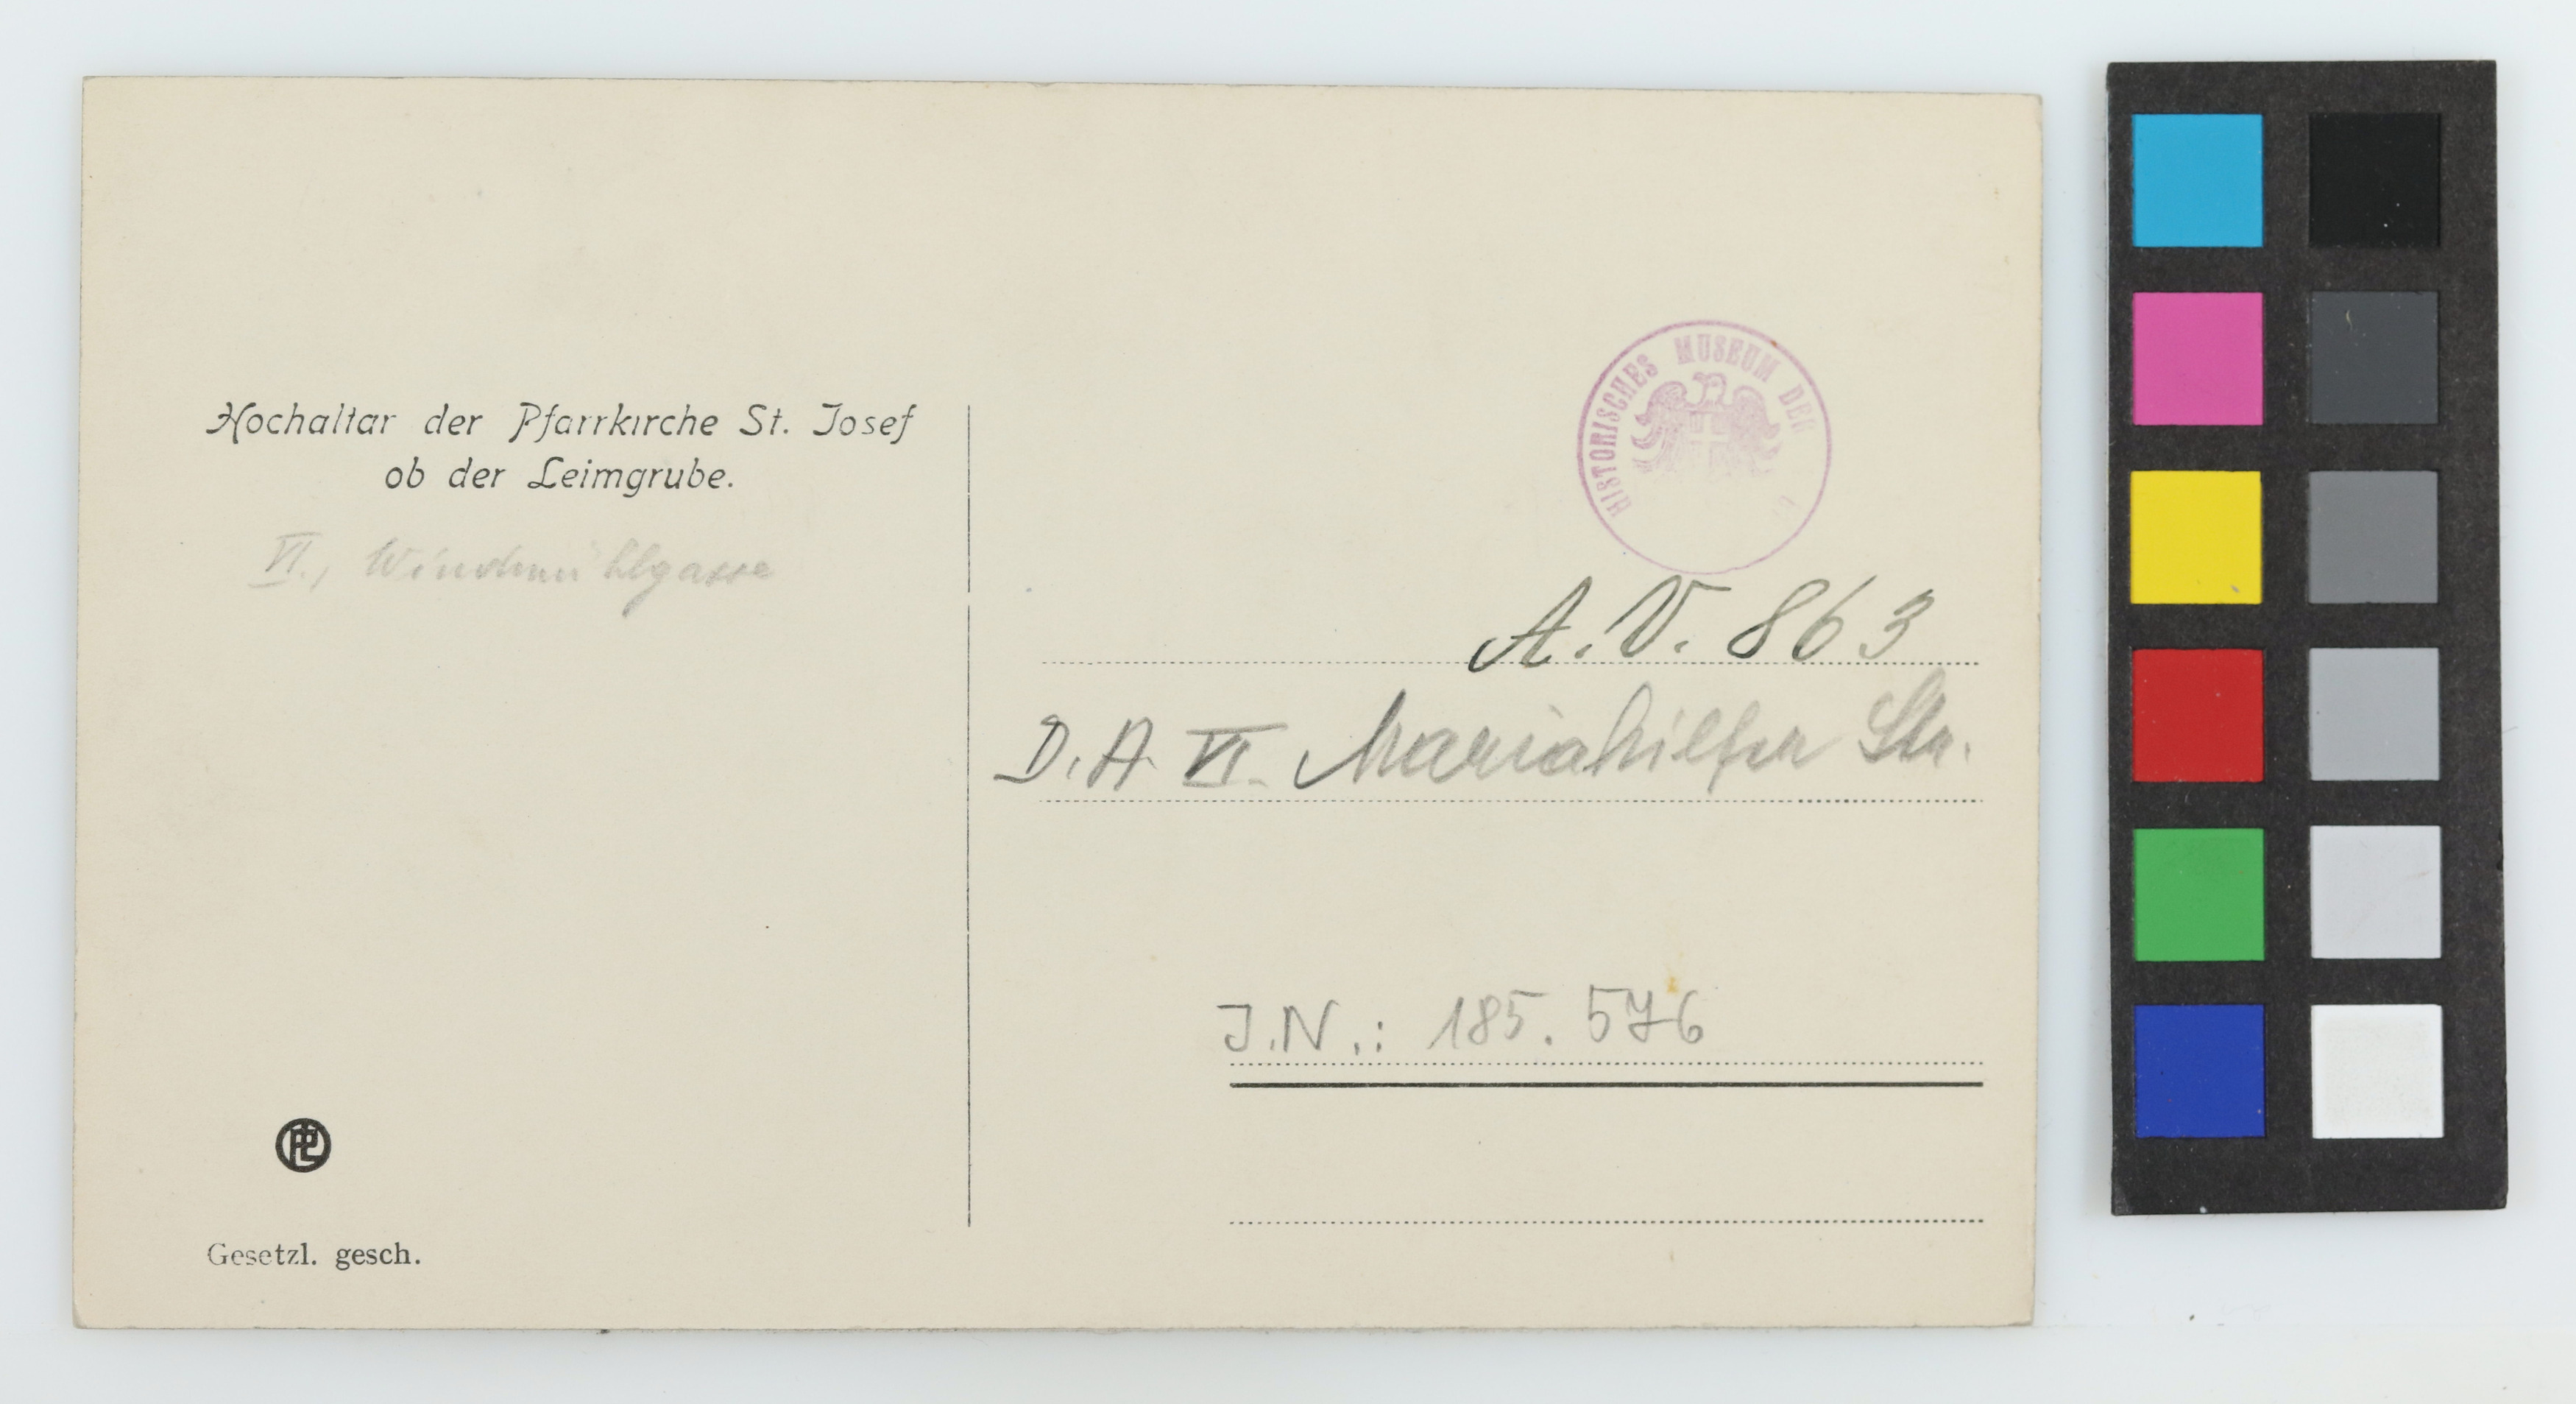 Hochaltar der Pfarrkirche St. Josef
ob der Leimgrube.
VI., Windmühlgasse
Gesetzl. gesch.
HISTORISCHES MUSEUM DER
A.V. 863
D.A. VI. Mariahilfer Str.
J.N.: 185.576